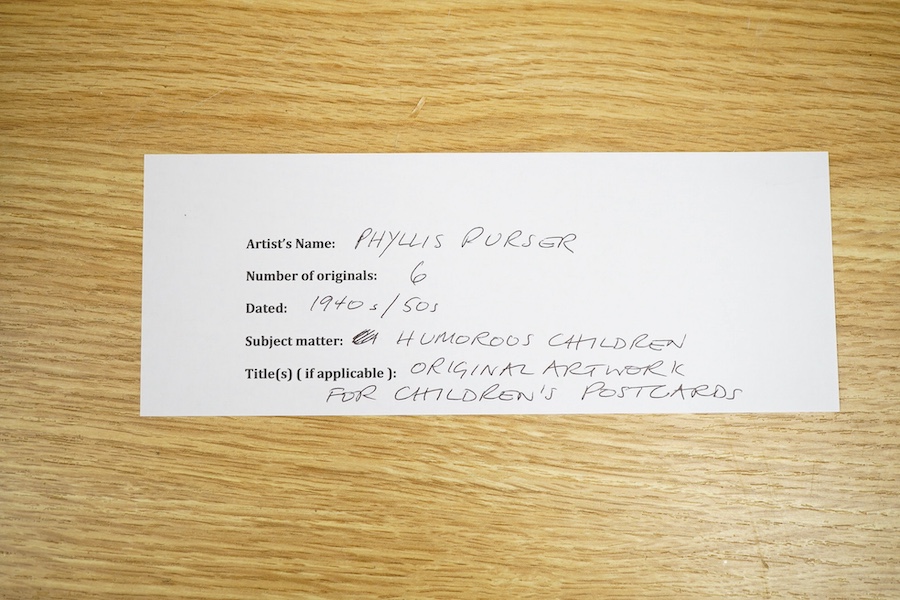 Artist's Name: PHYLLIS PURSER
Number of originals: 6
Dated: 1940s/50s
Subject matter: HUMOROUS CHILDREN
Title(s) ( if applicable ): ORIGINAL ARTWORK
FOR CHILDREN'S POSTCARDS